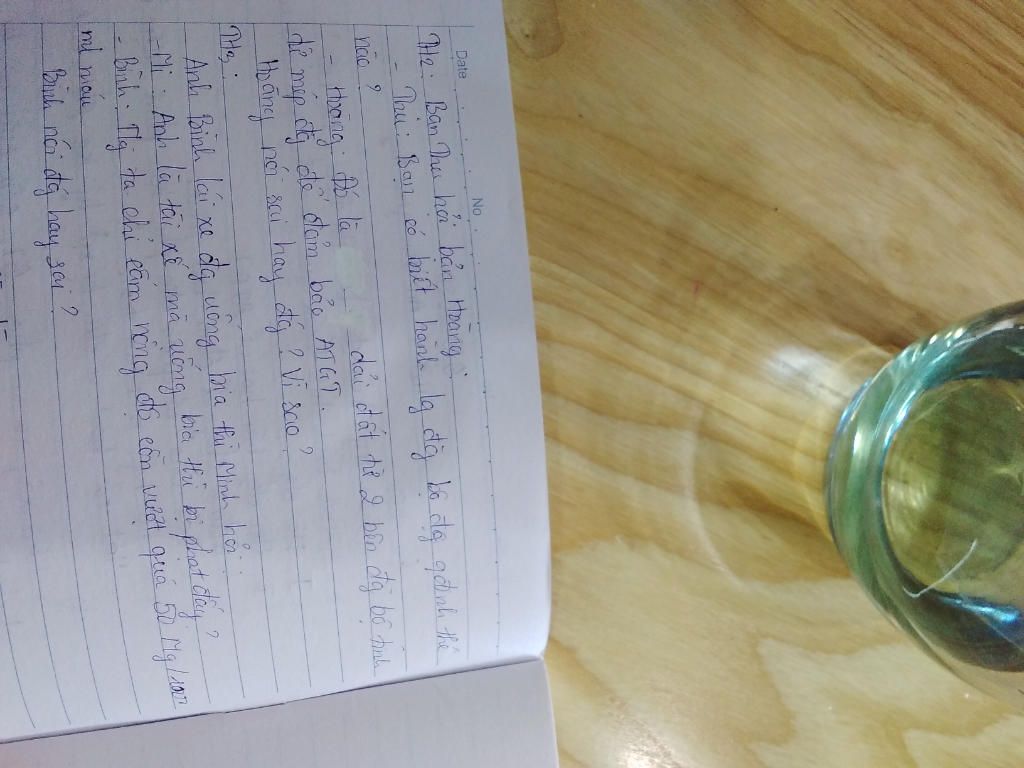 Date
No
TH2: Bạn Thu hỏi bạn Hoàng:
- Thu: Bạn có biết hành lg đg bộ đg qđịnh thế
nào?
- Hoàng: Đó là dải đất từ 2 bên đg bộ tính
từ mép đg để đảm bảo ATGT.
Hoàng nói sai hay đg? Vì sao?
TH3:
Anh Bình lái xe đg uống bia thì Minh hỏi:
- Mi: Anh là tài xế mà uống bia thì bị phạt đấy?
- Bình: Ng ta chỉ cấm nồng độ cồn vượt quá 50 Mg/100
ml máu
Bình nói đg hay sai?